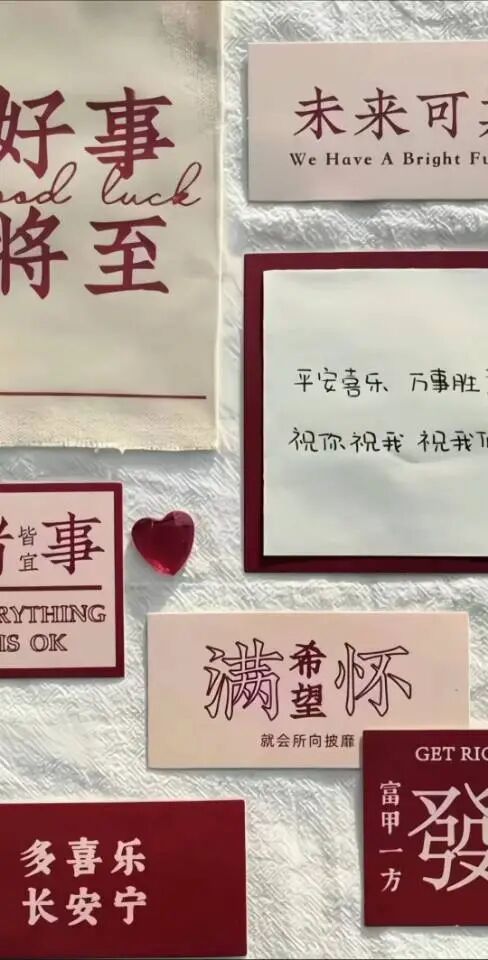 好事
good luck
将至
未来可
We Have A Bright
平安喜乐 万事胜
祝你祝我 祝我们
事
皆宜
IS OK
满希望怀
就会所向披靡
GET
富甲一方
發
多喜乐
长安宁